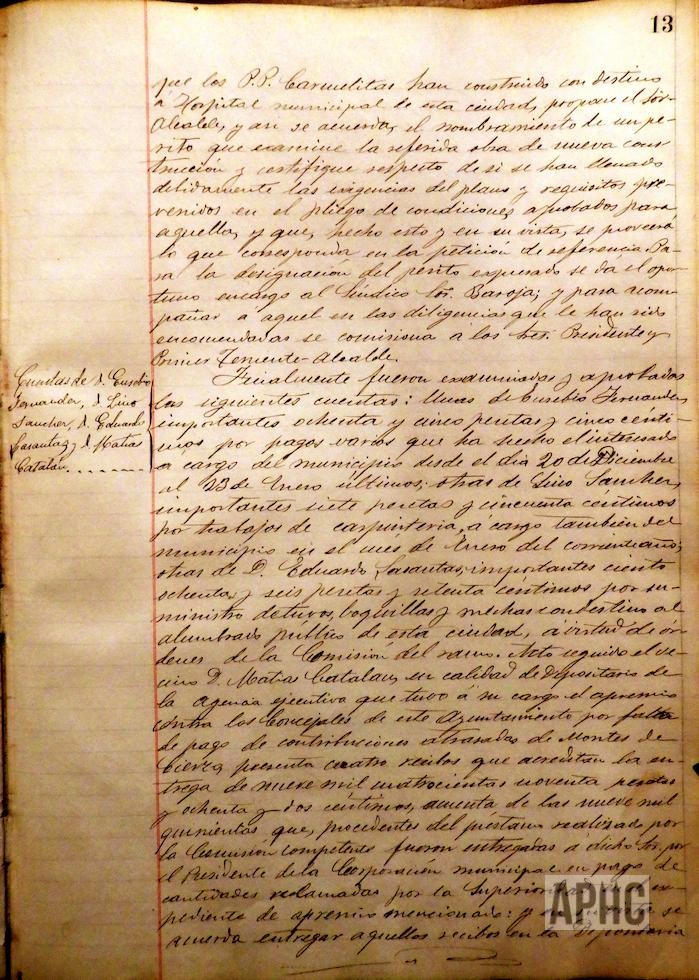 13
que los P.P. Carmelitas han construido con destino
á Hospital municipal de esta ciudad, propone el Sor.
Alcalde, y así se acuerda, el nombramiento de un pe-
rito que examine la referida obra de nueva cons-
trucción y certifique respecto de si se han llenado
debidamente las exigencias del plano y requisitos pre-
venidos en el pliego de condiciones aprobados para
aquella, y que, hecho esto y en su vista, se proveerá
lo que corresponda en la petición de referencia. Pa-
ra la designación del perito expresado se dá el opor-
tuno encargo al Síndico Sor. Baroja; y para acom-
pañar a aquel en las diligencias que le han sido
encomendadas se comisiona á los Sres. Presidente y
Primer Teniente-Alcalde.
Cuentas de D. Eusebio
Fernandez, D. Lino
Sanchez, D. Eduardo
Lasantas y D. Matias
Catalán
Finalmente fueron examinadas y aprobadas
las siguientes cuentas: Unas de Eusebio Fernandez
importantes ochenta y cinco pesetas y cinco cénti-
mos por pagos varios que ha hecho el interesado
a cargo del municipio desde el dia 20 de Diciembre
al 23 de Enero últimos; otras de Lino Sanchez,
importantes siete pesetas y cincuenta céntimos
por trabajos de carpintería, á cargo también del
municipio en el mes de Enero del corriente año;
otras de D. Eduardo Lasantas, importantes ciento
ochenta y seis pesetas y setenta céntimos por su-
ministro de tuvos, boquillas y mechas con destino al
alumbrado público de esta ciudad, á virtud de ór-
denes de la Comisión del ramo. Acto seguido el ve-
cino D. Matias Catalan, en calidad de Depositario de
la Agencia ejecutiva que tuvo á su cargo el apremio
contra los Concejales de este Ayuntamiento por falta
de pago de contribuciones atrasadas de Montes de
Cierzo, presenta cuatro recibos que acreditan la en-
trega de nueve mil cuatrocientas noventa pesetas
y ochenta y dos céntimos, a cuenta de las nueve mil
quinientas que, procedentes del préstamo realizado por
la Comisión competente fueron entregadas a dicho Sor. por
el Presidente de la Corporación municipal en pago de
cantidades reclamadas por la Superioridad ex-
pediente de apremio mencionado: y se
acuerda entregar aquellos recibos en la Depositaria
APHC